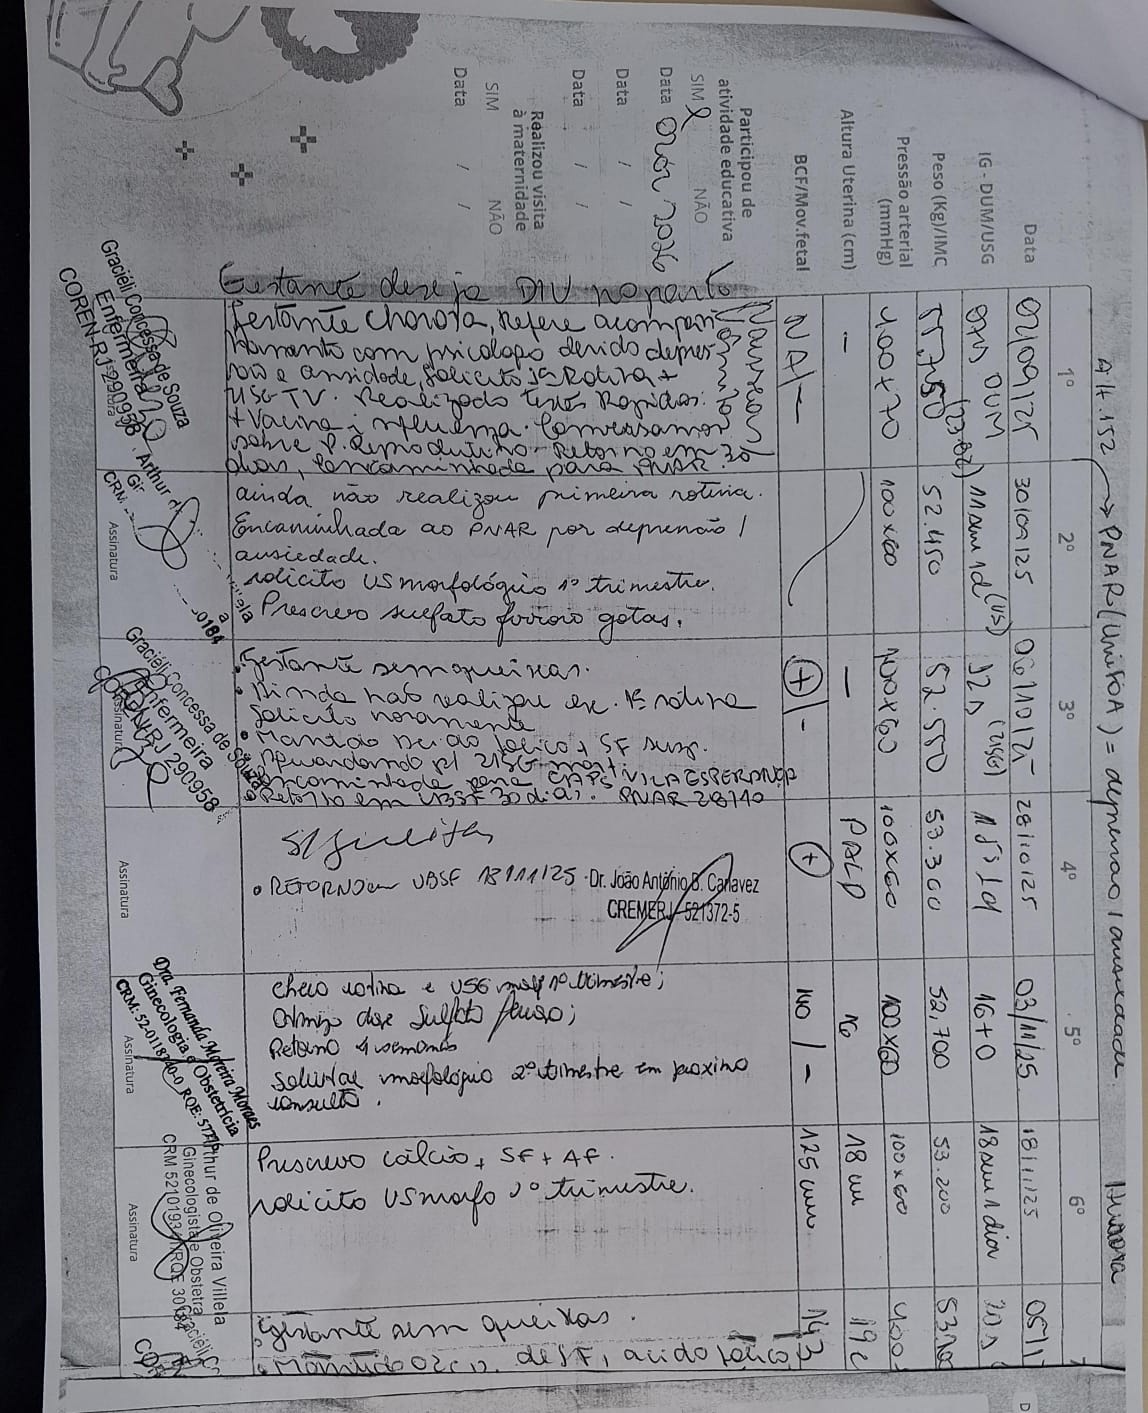 Alt. 1,52 → PNAR (UNIFOA) = depressão / ansiedade.
Data
IG - DUM/USG
Peso (Kg)/IMC
Pressão arterial
(mmHg)
Altura Uterina (cm)
BCF/Mov.fetal
Participou de
atividade educativa
SIM NÃO
Data
Data / /
Data / /
Realizou visita
à maternidade
SIM NÃO
Data / /
1º
02/09/25
DUM
55,750
100x70
-
NA/-
Gestante deseja DIU no parto
Gestante chorosa, refere acompa
nhamento com psicologo devido depres
são e ansiedade, solicito 1ª Rotina +
USG TV. Realizado testes Rapidos.
+ Vacina influenza. Conversamos
sobre P. Reprodutivo. Retorno em 30
dias, encaminhada para PNAR.
Graciéli Concessa de Souza
Enfermeira
COREN-RJ 290958
2º
30/09/25
11sem 1d (US)
52.450
100x60
ainda não realizou primeira rotina.
Encaminhada ao PNAR por depressão /
ansiedade.
solicito US morfológico 1º trimestre.
Prescrevo sulfato ferroso gotas.
Assinatura
3º
06/10/25
12s (USG)
52.550
100x60
-
+/-
Gestante sem queixas.
Ainda não realizou ex. 1ª rotina
solicito novamente
Mantido ácido fólico + SF susp.
Aguardando p/ USG morf.
Encaminhada para CAPS VILA ESPERANÇA
Retorno em UBSF 30 dias. PNAR 28/10
Graciéli Concessa de Souza
Enfermeira
COREN-RJ 290958
Assinatura
4º
28/10/25
15s 1d
53.300
100x60
PALP
+
RETORNO em UBSF 18/11/25
Dr. João Antônio B. Canavez
CREMERJ 521372-5
Assinatura
5º
03/11/25
16+0
52,700
100x60
140/-
Checo rotina e USG morf 1º trimestre;
Otimizo dose Sulfato ferroso;
Retorno 4 semanas
Solicitar morfológico 2º trimestre em próximo
consulta.
Dra. Fernanda Moreira Moraes
Ginecologia e Obstetrícia
Assinatura
6º
18/11/25
18sem 1 dia
53.200
100x60
18 cm
125
Prescrevo cálcio + SF + AF.
solicito US morfo 2º trimestre.
Arthur de Oliveira Villela
Ginecologista e Obstetra
Assinatura
05/1
19c
143
Gestante sem queixas.